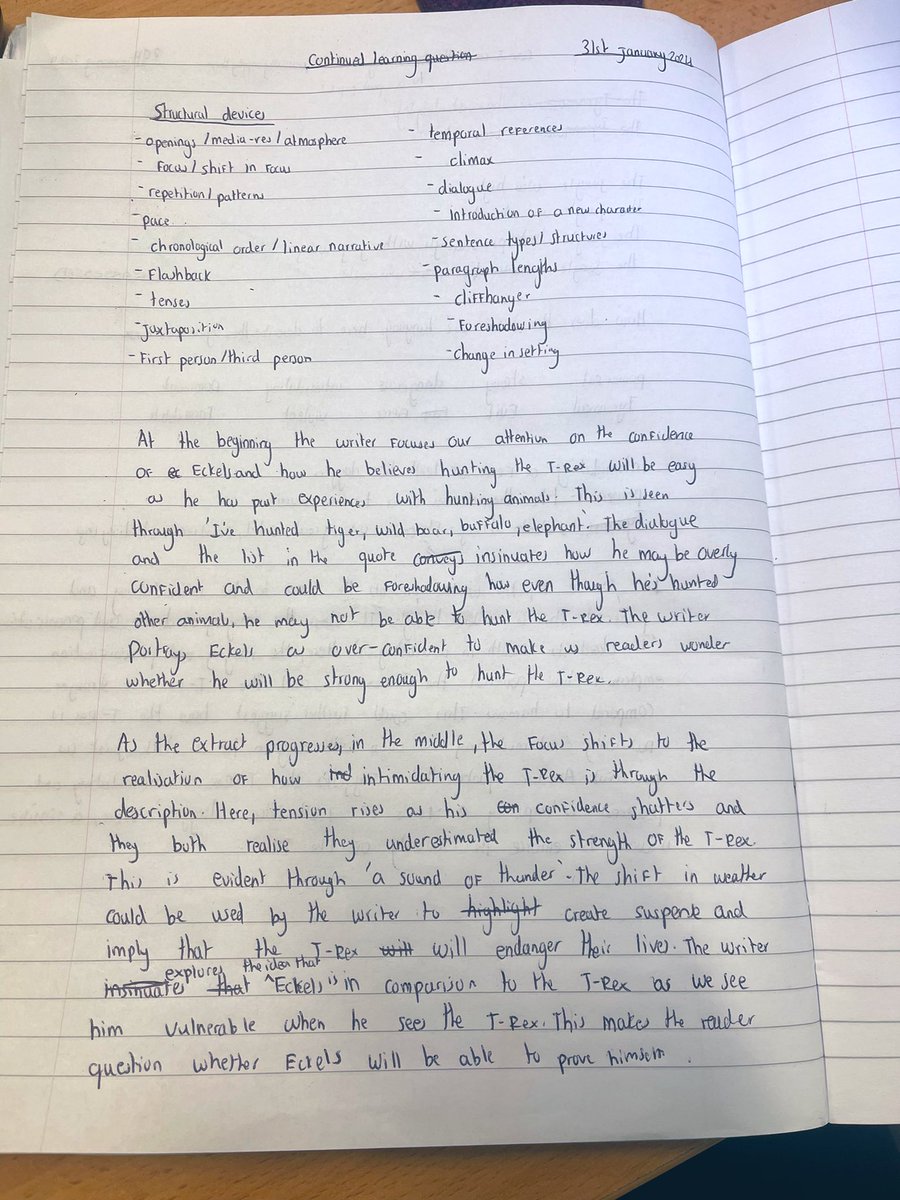 Continued learning question
31st January 2024
Structural devices
- openings / media-res / atmosphere
- Focus / shift in Focus
- repetition / patterns
- pace
- chronological order / linear narrative
- Flashback
- tenses
- Juxtaposition
- First person / third person
- temporal references
- climax
- dialogue
- introduction of a new character
- sentence types / structures
- paragraph lengths
- cliffhanger
- Foreshadowing
- change in setting
At the beginning the writer focuses our attention on the confidence
of Eckels and how he believes hunting the T-Rex will be easy
as he has past experiences with hunting animals. This is seen
through 'I've hunted tiger, wild boar, buffalo, elephant'. The dialogue
and the list in the quote conveys insinuates how he may be overly
confident and could be foreshadowing how even though he's hunted
other animals, he may not be able to hunt the T-Rex. The writer
Portrays Eckels as over-confident to make us readers wonder
whether he will be strong enough to hunt the T-Rex.
As the extract progresses, in the middle, the focus shifts to the
realisation of how ind intimidating the T-Rex is through the
description. Here, tension rises as his con confidence shatters and
they both realise they underestimated the strength of the T-Rex.
This is evident through 'a sound of thunder' - the shift in weather
could be used by the writer to highlight create suspense and
imply that the T-Rex will will endanger their lives. The writer
explores the idea that
insinuates that ^Eckels is in comparison to the T-Rex as we see
him vulnerable when he sees the T-Rex. This makes the reader
question whether Eckels will be able to prove himself.